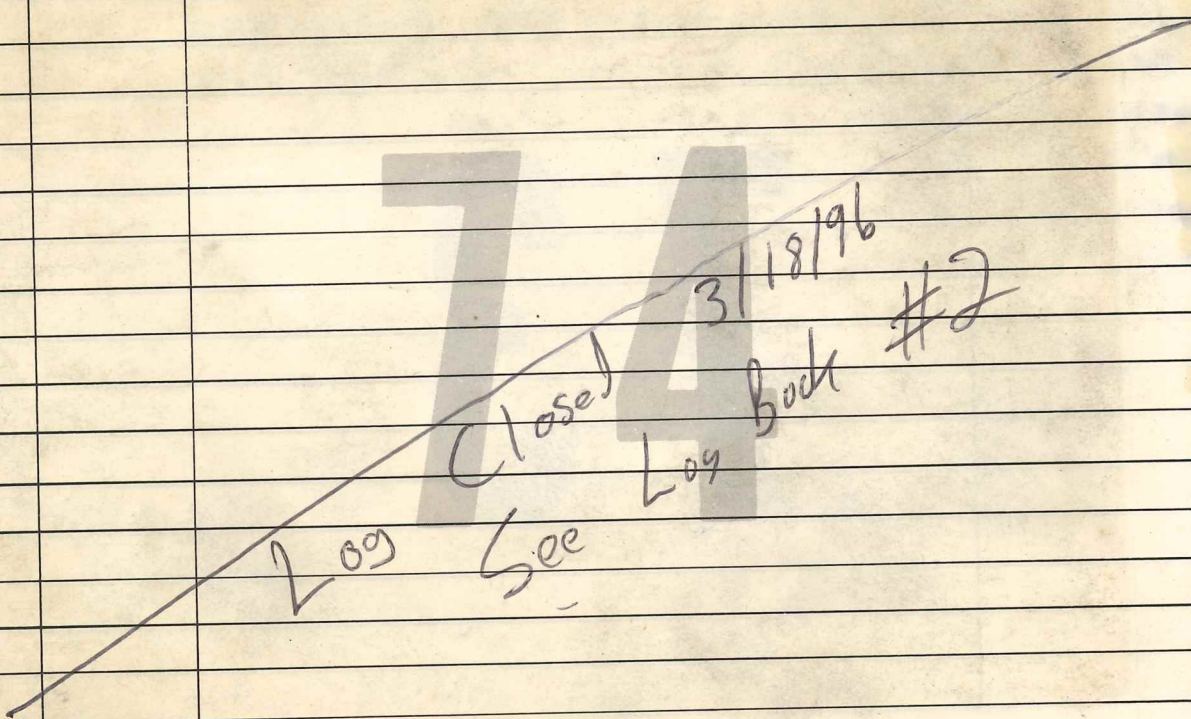 74
Log Closed 3/18/96
See Log Book #2